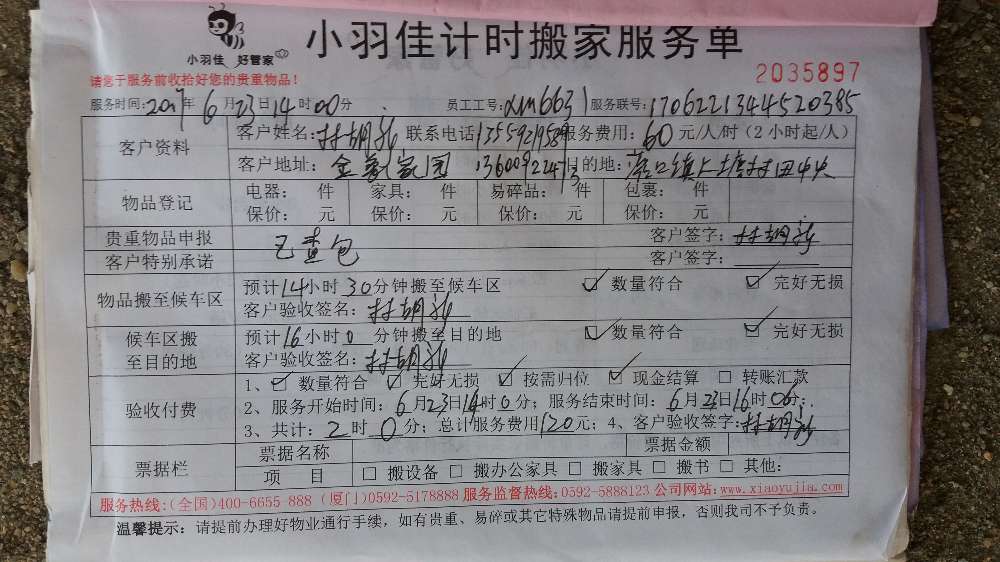 小羽佳 好管家
小羽佳计时搬家服务单
请您于服务前收拾好您的贵重物品！
2035897
服务时间：2017年6月23日14时00分 员工工号：xm6631 服务联号：1706221344520385
客户资料
客户姓名：林胡新 联系电话 13559219589 服务费用：60元/人/时（2小时起/人）
客户地址：金象家园 13600922471 目的地：镇上塘村田中央
物品登记
电器： 件 家具： 件 易碎品： 件 包裹： 件
保价： 元 保价： 元 保价： 元 保价： 元
贵重物品申报 已查包 客户签字：林胡新
客户特别承诺 客户签字：
物品搬至候车区
预计14小时30分钟搬至候车区 数量符合 完好无损
客户验收签名：林胡新
候车区搬至目的地
预计16小时0分钟搬至目的地 数量符合 完好无损
客户验收签名：林胡新
验收付费
1、数量符合 完好无损 按需归位 现金结算 转账汇款
2、服务开始时间：6月23日14时0分；服务结束时间：6月23日16时06分；
3、共计：2时0分；总计服务费用120元；4、客户验收签字：林胡新
票据栏
票据名称 票据金额
项 目 搬设备 搬办公家具 搬家具 搬书 其他：
服务热线：(全国)400-6655-888 (厦门)0592-5178888 服务监督热线：0592-5888123 公司网站：www.xiaoyujia.com
温馨提示：请提前办理好物业通行手续，如有贵重、易碎或其它特殊物品请提前申报，否则我司不予负责。